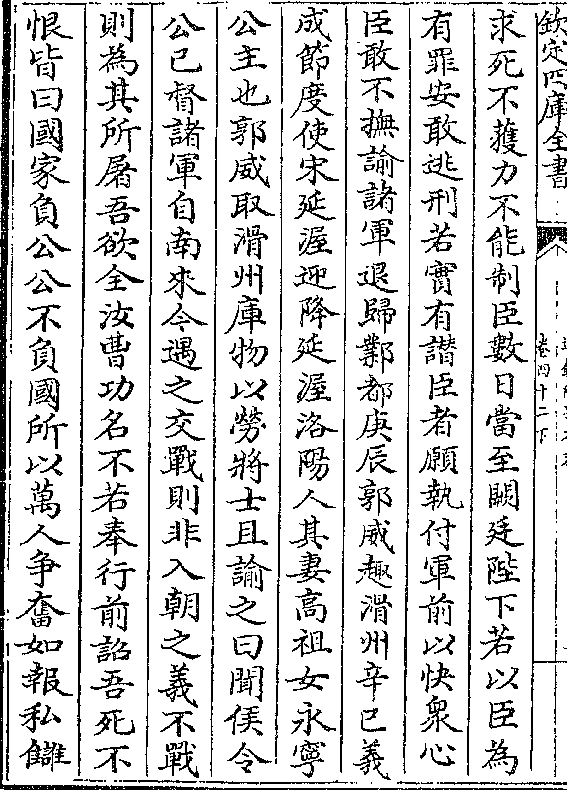 欽定四庫全書
卷四十二下
求死不獲力不能制臣數日當至闕廷陛下若以臣為
有罪安敢逃刑若實有譖臣者願執付軍前以快衆心
臣敢不撫諭諸軍退歸鄴都庚辰郭威趣滑州辛巳義
成節度使宋延渥迎降延渥洛陽人其妻髙祖女永寧
公主也郭威取滑州庫物以勞將士且諭之曰聞侯令
公已督諸軍自南來今遇之交戰則非入朝之義不戰
則為其所屠吾欲全汝曹功名不若奉行前詔吾死不
恨皆曰國家負公公不負國所以萬人争奮如報私讎